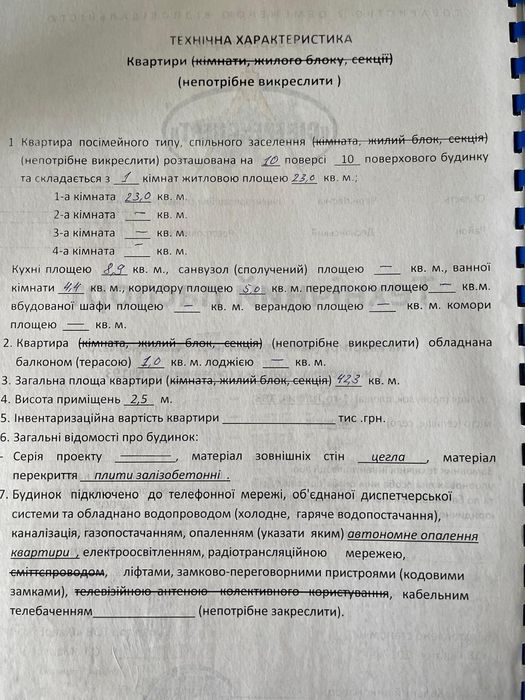 ТЕХНІЧНА ХАРАКТЕРИСТИКА
Квартири (кімнати, жилого блоку, секції)
(непотрібне викреслити )
1 Квартира посімейного типу, спільного заселення (кімната, жилий блок, секція)
(непотрібне викреслити) розташована на 10 поверсі 10 поверхового будинку
та складається з 1 кімнат житловою площею 23,0 кв. м.;
1-а кімната 23,0 кв. м.
2-а кімната — кв. м.
3-а кімната — кв. м.
4-а кімната — кв. м.
Кухні площею 8,9 кв. м., санвузол (сполучений) площею — кв. м., ванної
кімнати 4,4 кв. м., коридору площею 5,0 кв. м. передпокою площею — кв.м.
вбудованої шафи площею — кв. м. верандою площею — кв. м. комори
площею — кв. м.
2. Квартира (кімната, жилий блок, секція) (непотрібне викреслити) обладнана
балконом (терасою) 1,0 кв. м. лоджією — кв. м.
3. Загальна площа квартири (кімната, жилий блок, секція) 42,3 кв. м.
4. Висота приміщень 2,5 м.
5. Інвентаризаційна вартість квартири ________________ тис .грн.
6. Загальні відомості про будинок:
- Серія проекту ————, матеріал зовнішніх стін цегла, матеріал
перекриття плити залізобетонні .
7. Будинок підключено до телефонної мережі, об'єднаної диспетчерської
системи та обладнано водопроводом (холодне, гаряче водопостачання),
каналізація, газопостачанням, опаленням (указати яким) автономне опалення
квартири , електроосвітленням, радіотрансляційною мережею,
сміттєпроводом, ліфтами, замково-переговорними пристроями (кодовими
замками), телевізійною антеною колективного користування, кабельним
телебаченням______________ (непотрібне закреслити).